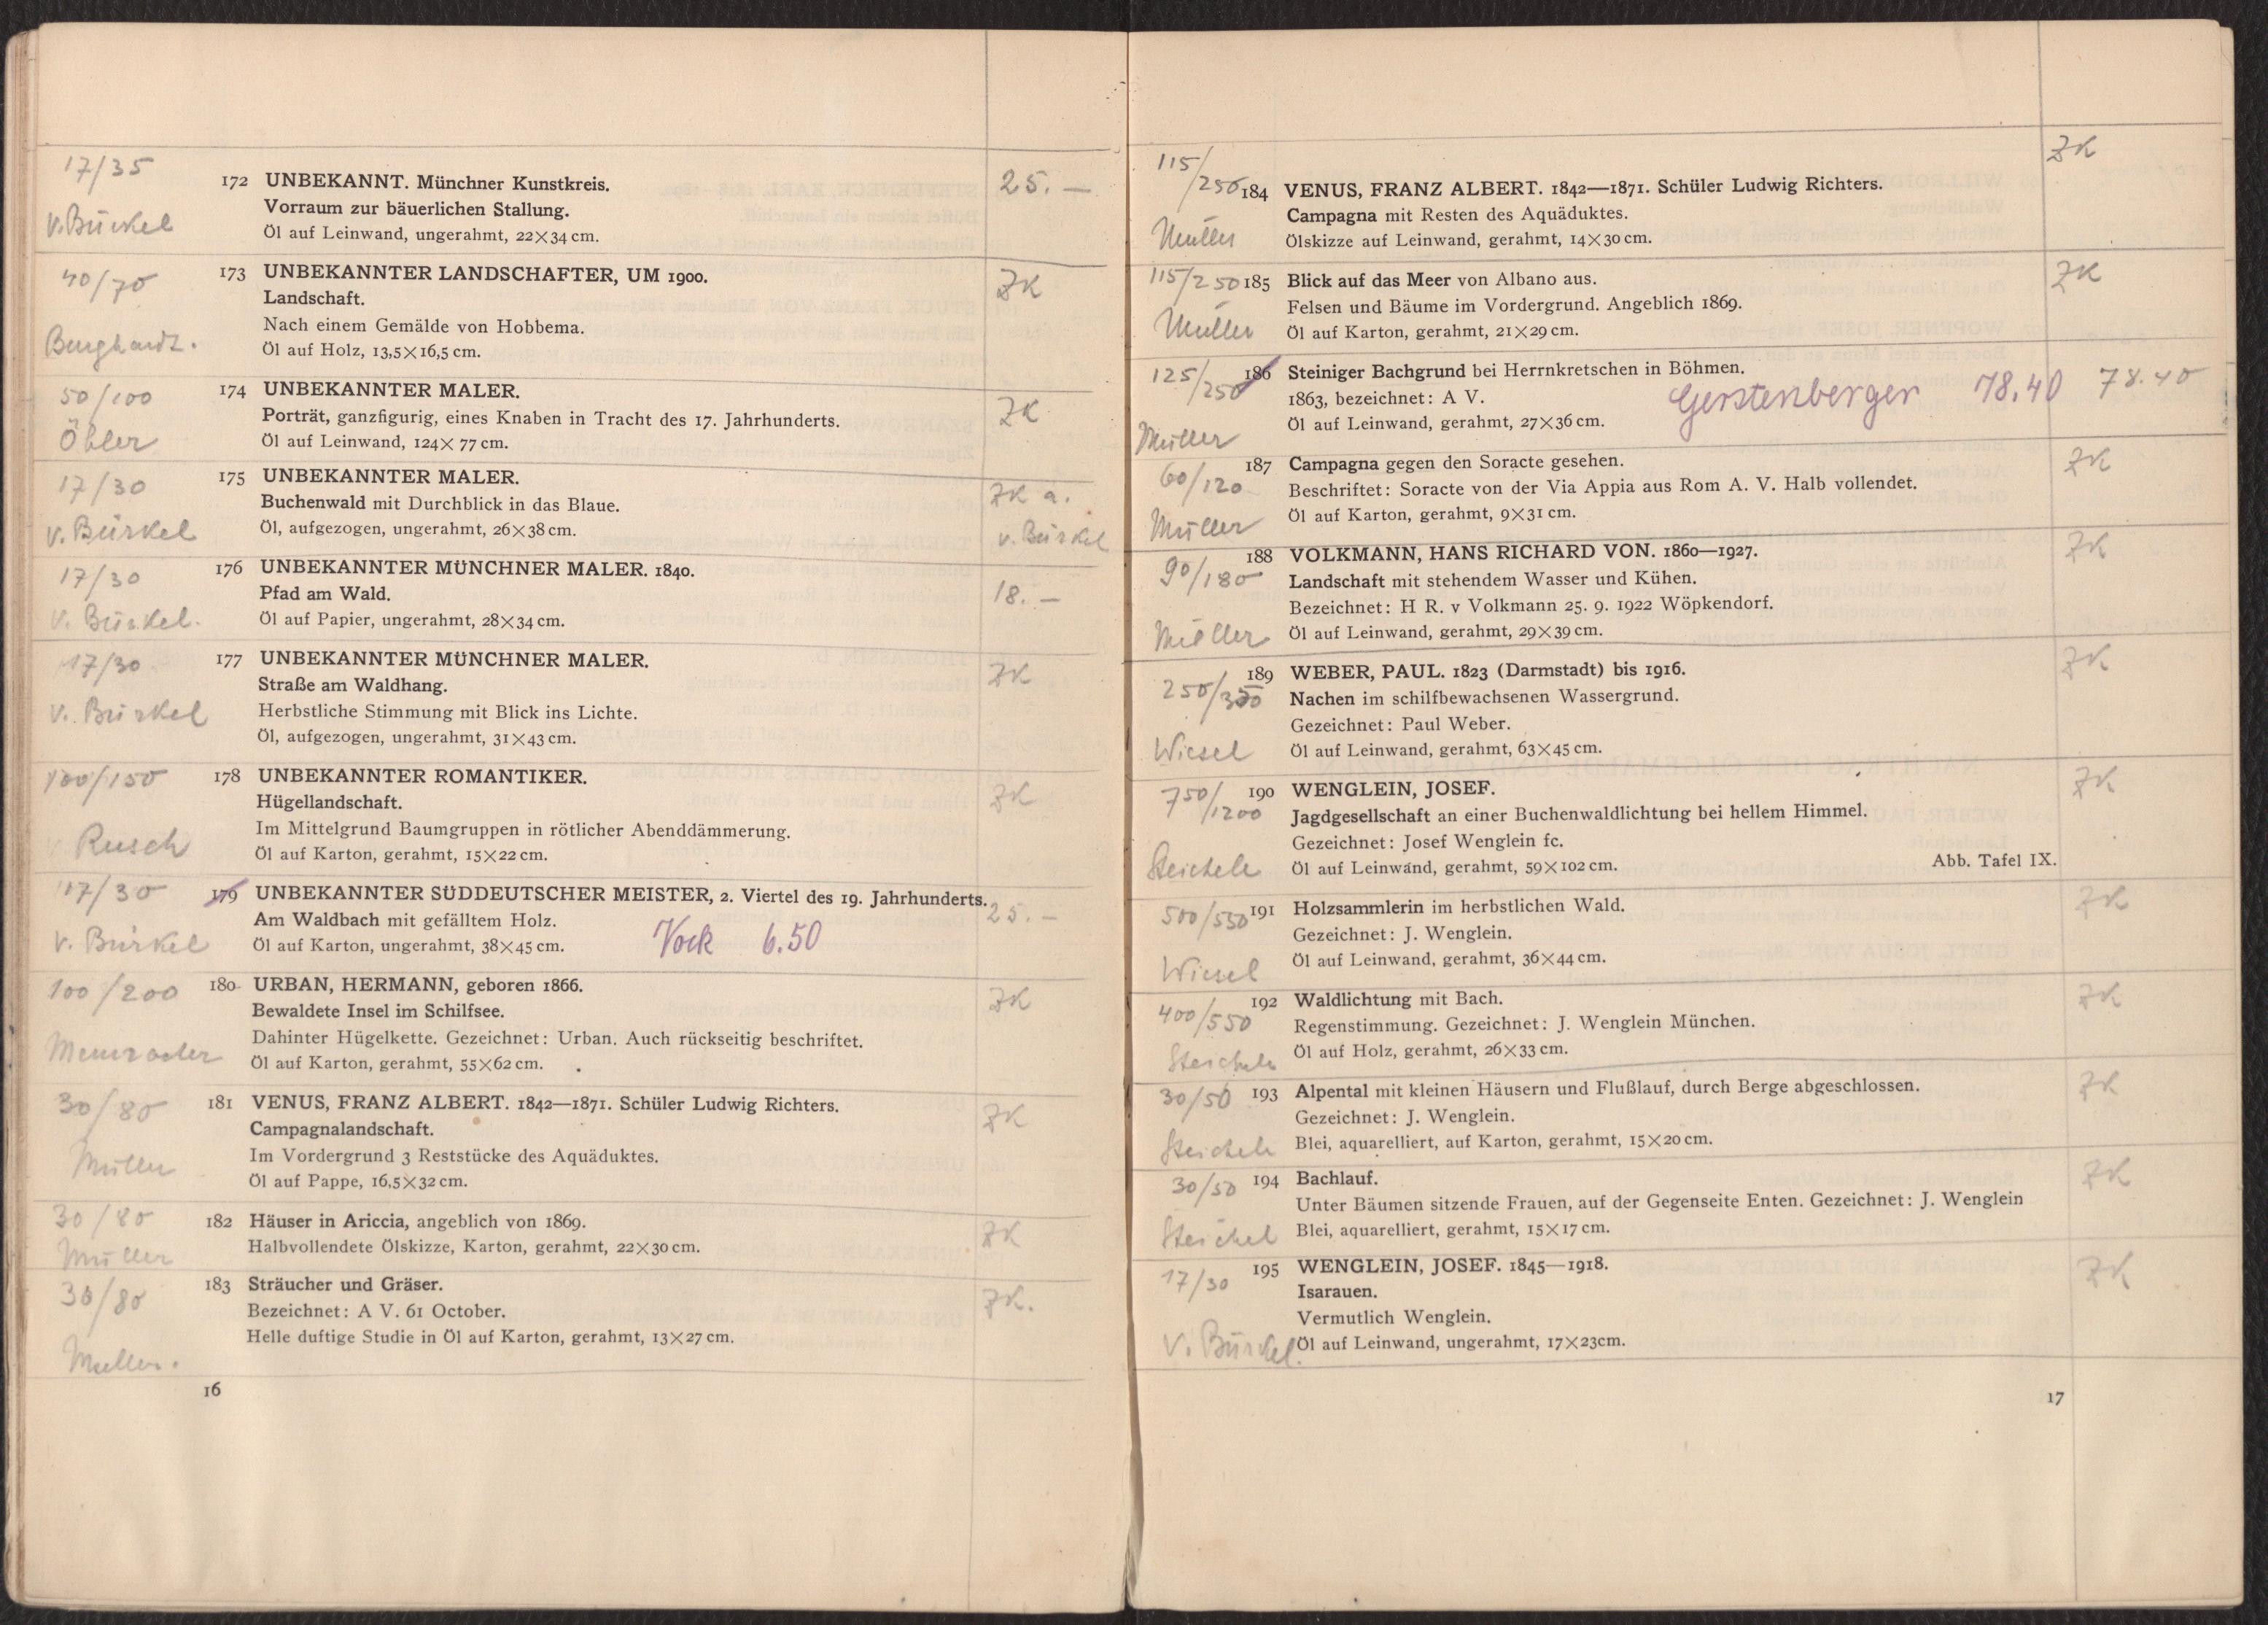 17/35
172 UNBEKANNT. Münchner Kunstkreis. 25.—
Vorraum zur bäuerlichen Stallung.
v. Bürkel
Öl auf Leinwand, ungerahmt, 22×34 cm.
40/70
173 UNBEKANNTER LANDSCHAFTER, UM 1900. ZK
Landschaft.
Nach einem Gemälde von Hobbema.
Burghardt.
Öl auf Holz, 13,5×16,5 cm.
50/100
174 UNBEKANNTER MALER. ZK
Porträt, ganzfigurig, eines Knaben in Tracht des 17. Jahrhunderts.
Öl auf Leinwand, 124×77 cm.
17/30
175 UNBEKANNTER MALER. ZK a.
Buchenwald mit Durchblick in das Blaue.
v. Bürkel
Öl, aufgezogen, ungerahmt, 26×38 cm. v. Bürkel
17/30
176 UNBEKANNTER MÜNCHNER MALER. 1840.
Pfad am Wald. 18.—
v. Bürkel.
Öl auf Papier, ungerahmt, 28×34 cm.
17/30
177 UNBEKANNTER MÜNCHNER MALER. ZK
Straße am Waldhang.
v. Bürkel
Herbstliche Stimmung mit Blick ins Lichte.
Öl, aufgezogen, ungerahmt, 31×43 cm.
100/150
178 UNBEKANNTER ROMANTIKER. ZK
Hügellandschaft.
Im Mittelgrund Baumgruppen in rötlicher Abenddämmerung.
Rusch
Öl auf Karton, gerahmt, 15×22 cm.
17/30
179 UNBEKANNTER SÜDDEUTSCHER MEISTER, 2. Viertel des 19. Jahrhunderts. 25.—
Am Waldbach mit gefälltem Holz.
v. Bürkel
Öl auf Karton, ungerahmt, 38×45 cm. Vock 6.50
100/200
180 URBAN, HERMANN, geboren 1866. ZK
Bewaldete Insel im Schilfsee.
Dahinter Hügelkette. Gezeichnet: Urban. Auch rückseitig beschriftet.
Öl auf Karton, gerahmt, 55×62 cm.
30/80
181 VENUS, FRANZ ALBERT. 1842—1871. Schüler Ludwig Richters. ZK
Campagnalandschaft.
Im Vordergrund 3 Reststücke des Aquäduktes.
Müller
Öl auf Pappe, 16,5×32 cm.
30/80
182 Häuser in Ariccia, angeblich von 1869. ZK
Müller
Halbvollendete Ölskizze, Karton, gerahmt, 22×30 cm.
30/80
183 Sträucher und Gräser. ZK.
Bezeichnet: A V. 61 October.
Helle duftige Studie in Öl auf Karton, gerahmt, 13×27 cm.
Müller.
16
115/250 ZK
184 VENUS, FRANZ ALBERT. 1842—1871. Schüler Ludwig Richters.
Campagna mit Resten des Aquäduktes.
Müller
Ölskizze auf Leinwand, gerahmt, 14×30 cm.
115/250
185 Blick auf das Meer von Albano aus. ZK
Felsen und Bäume im Vordergrund. Angeblich 1869.
Müller
Öl auf Karton, gerahmt, 21×29 cm.
125/250
186 Steiniger Bachgrund bei Herrnkretschen in Böhmen.
1863, bezeichnet: A V. Gerstenberger 78.40 78.40
Öl auf Leinwand, gerahmt, 27×36 cm.
Müller
60/120
187 Campagna gegen den Soracte gesehen. ZK
Beschriftet: Soracte von der Via Appia aus Rom A. V. Halb vollendet.
Müller
Öl auf Karton, gerahmt, 9×31 cm.
90/180
188 VOLKMANN, HANS RICHARD VON. 1860—1927. ZK
Landschaft mit stehendem Wasser und Kühen.
Bezeichnet: H R. v Volkmann 25. 9. 1922 Wöpkendorf.
Müller
Öl auf Leinwand, gerahmt, 29×39 cm.
250/350
189 WEBER, PAUL. 1823 (Darmstadt) bis 1916. ZK
Nachen im schilfbewachsenen Wassergrund.
Gezeichnet: Paul Weber.
Wiesel
Öl auf Leinwand, gerahmt, 63×45 cm.
750/1200
190 WENGLEIN, JOSEF. ZK
Jagdgesellschaft an einer Buchenwaldlichtung bei hellem Himmel.
Gezeichnet: Josef Wenglein fc.
Steichele
Öl auf Leinwand, gerahmt, 59×102 cm. Abb. Tafel IX.
500/550
191 Holzsammlerin im herbstlichen Wald. ZK
Gezeichnet: J. Wenglein.
Wiesel
Öl auf Leinwand, gerahmt, 36×44 cm.
400/550
192 Waldlichtung mit Bach. ZK
Regenstimmung. Gezeichnet: J. Wenglein München.
Steichele
Öl auf Holz, gerahmt, 26×33 cm.
30/50
193 Alpental mit kleinen Häusern und Flußlauf, durch Berge abgeschlossen. ZK
Gezeichnet: J. Wenglein.
Steichele
Blei, aquarelliert, auf Karton, gerahmt, 15×20 cm.
30/50
194 Bachlauf. ZK
Unter Bäumen sitzende Frauen, auf der Gegenseite Enten. Gezeichnet: J. Wenglein
Steichel
Blei, aquarelliert, gerahmt, 15×17 cm.
17/30
195 WENGLEIN, JOSEF. 1845—1918. ZK
Isarauen.
Vermutlich Wenglein.
v. Bürkel.
Öl auf Leinwand, ungerahmt, 17×23cm.
17